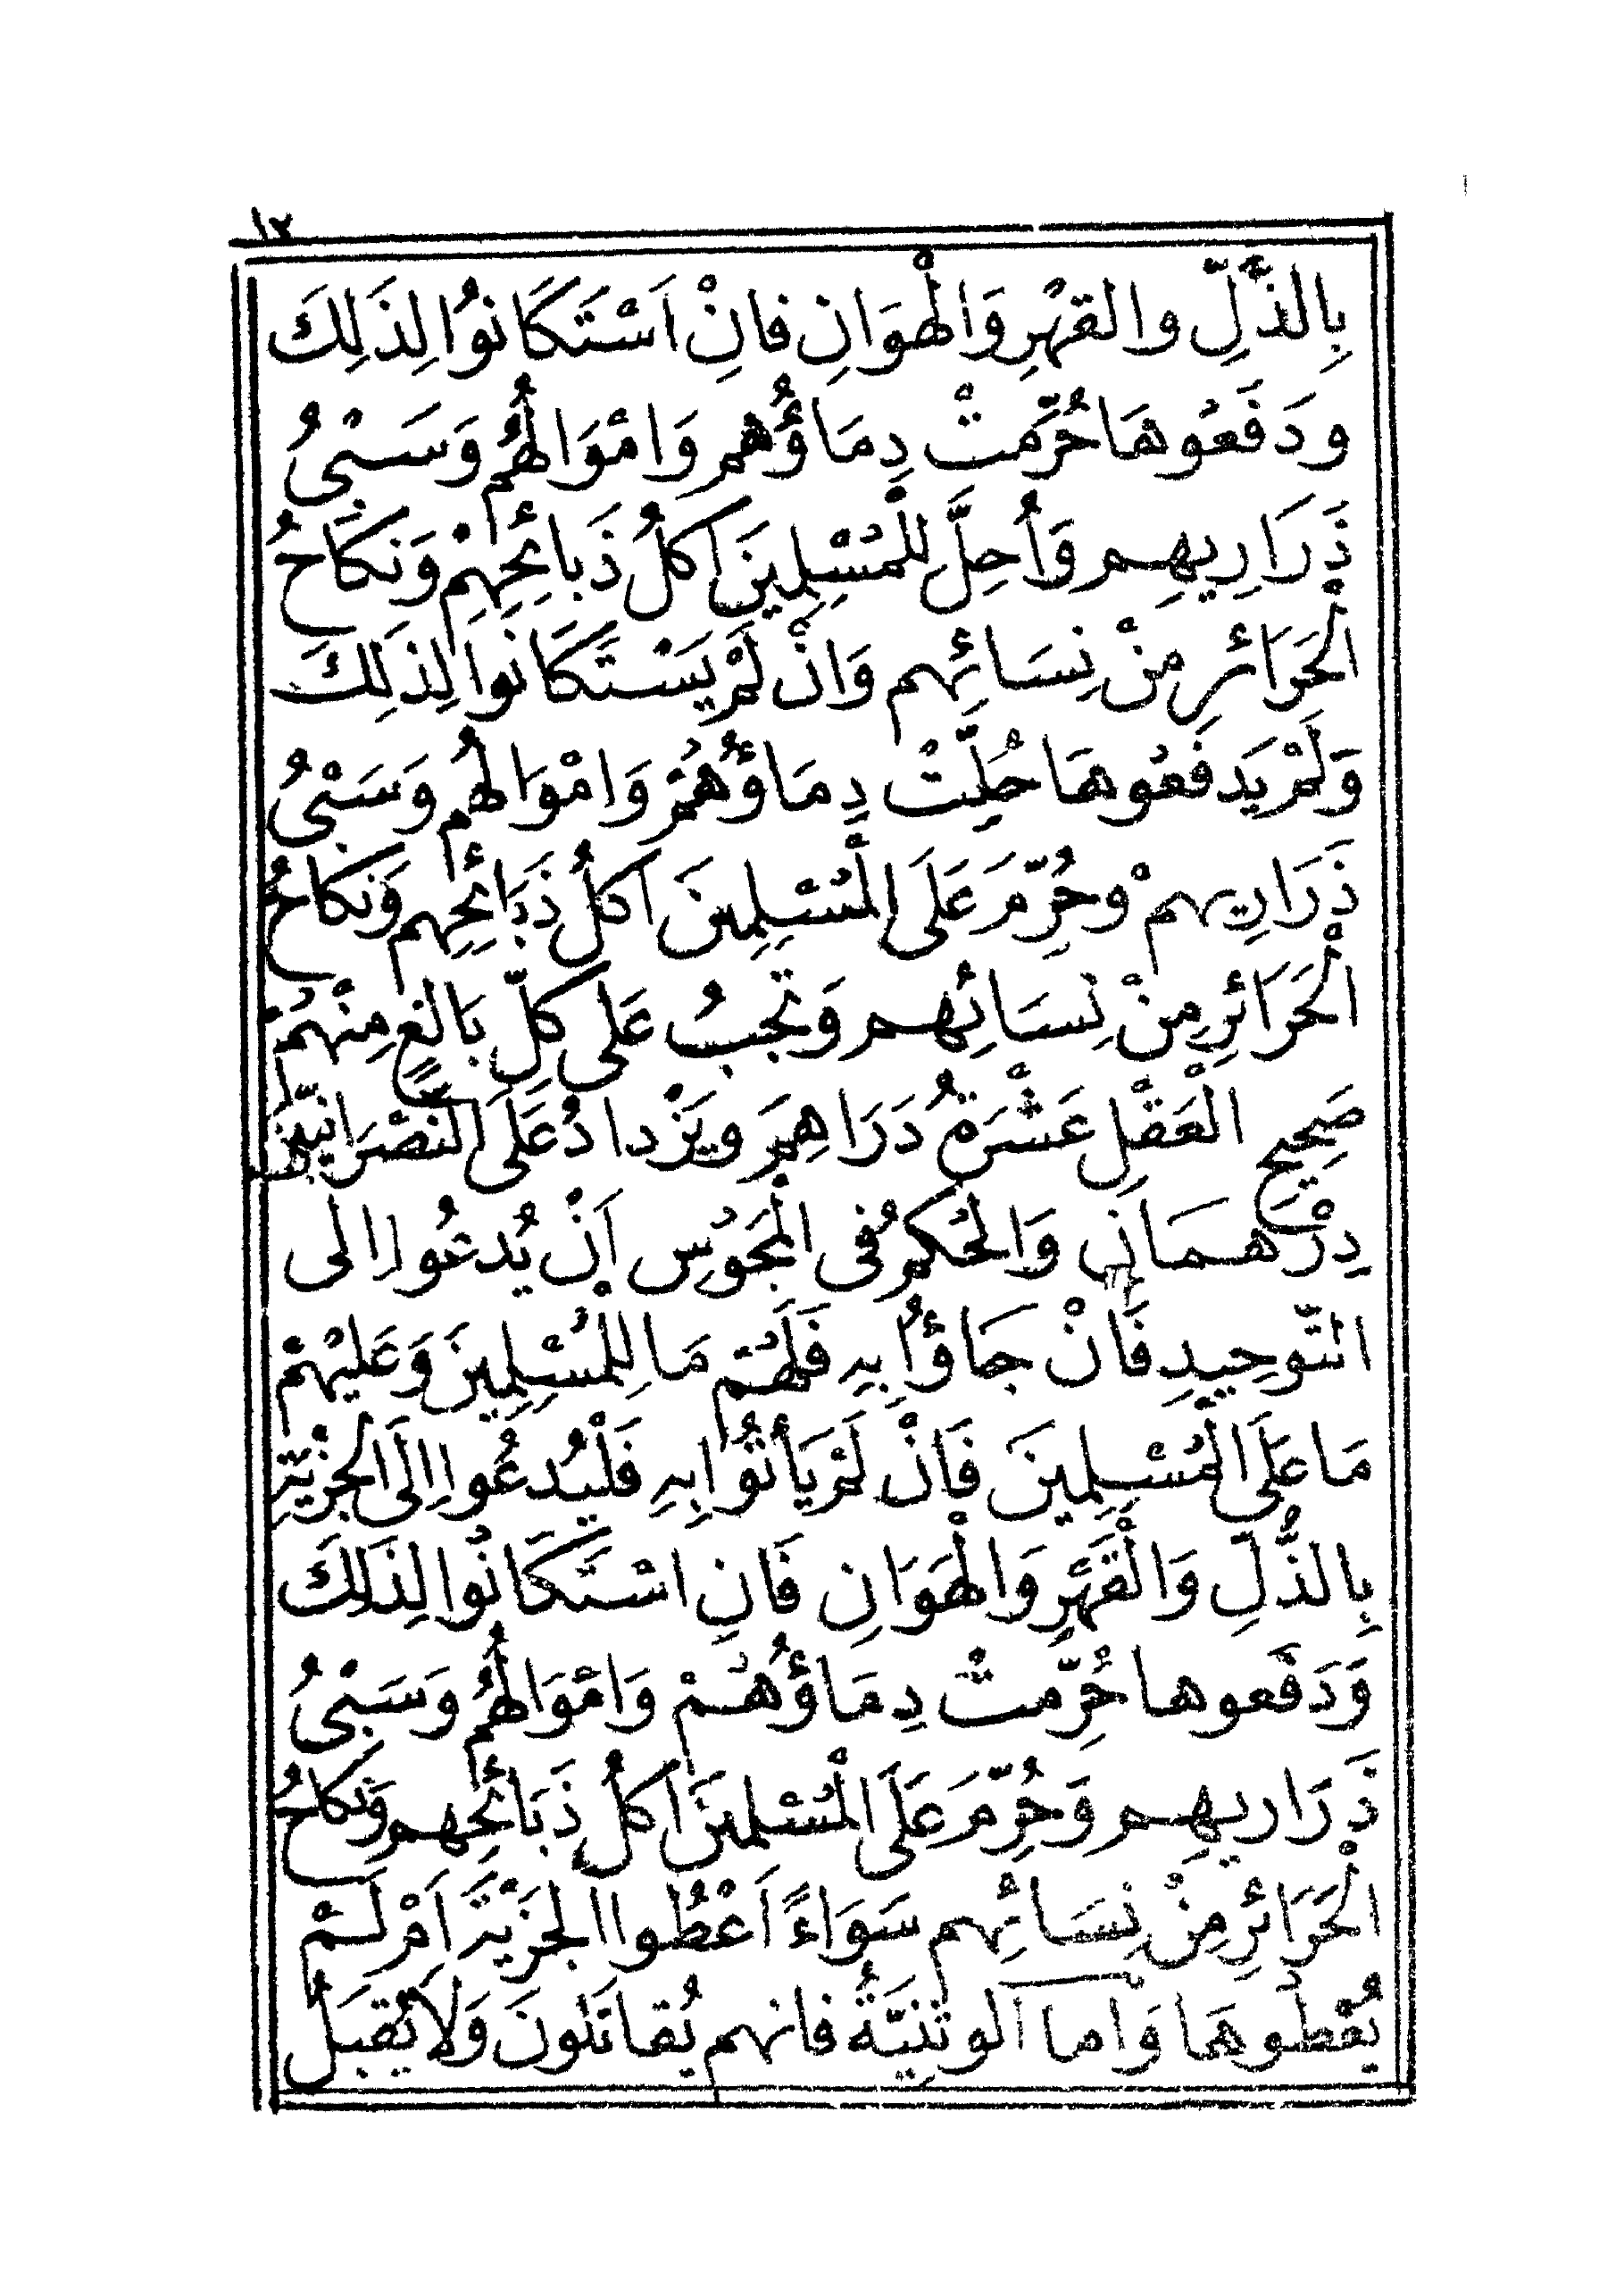 ١٢
بِالذُّلِّ والقهْرِ وَالْهوَانِ فانِْ اَسْتَكَانوُا لِذَلِكَ
ودَفَعُوهَا حُرِّمتْ دِمَاؤُهُم وَامْوَالُهُم وَسَبْىُ
ذَرَارِيهِم وَأُحِلَّ لِلْمُسْلِمِينَ اَكلُ ذَبائِحِهِمْ وَنِكَاحُ
الْحَرَائرِ مِنْ نِسَائِهم وَانْ لَمْ يَسْتَكَانوا لِذلِكَ
وَلَمْ يَدفَعُوهَا حُلِّتْ دِمَاؤُهُمْ وَامْوَالهُم وَسَبْىُ
ذَرَارِيهمْ وحُرِّمَ عَلَى الْمُسْلِمِينَ اَكلُ ذَبَائحِهِم وَنكاحُ
الْحَرَائرِ مِنْ نِسَائِهم وَتجبُ عَلى كلِّ بَالغٍ مِنْهُمْ
صَحِيحِ الْعَقْلِ عَشْرَةُ دَرَاهِمَ ويَزْدادُ عَلَى النَّصْرَانيِّينَ
دِرْهمَانِ وَالحُكمُ فى الْمَجَوُسِ اَنْ يُدعُوا الى
التّوحِيدِ فَانْ جَاؤُا بِهِ فَلَهُمْ مَا لِلْمُسْلِمِينَ وَعَليْهمْ
مَا عَلَى الْمُسْلِمينَ فَانْ لَمْ يَأتُوا بِهِ فَلْيُدعُوا اِلَى الجزْيَةِ
بِالذُّلِ وَالْقَهْرِ وَالْهَوَانِ فَانِ اسْتَكَانُوا لِذَلِكَ
وَدَفَعوها حُرِّمتْ دِمَاؤُهُمْ وَامْوَالُهُم وَسَبْىُ
ذَرَاريهِم وَحُرِّمَ عَلَى الْمُسْلِمينَ اَكلُ ذَبَائحِهم وَنكاحُ
الْحَرَائرِ مِنْ نِسَائِهم سَوَاءً اَعْطُوا الجزْيَةَ اَمْ لَمْ
يُعْطوهَا وَاما الوثنِيَّةُ فانهم يُقاتَلونَ وَلاَ يُقبَلُ